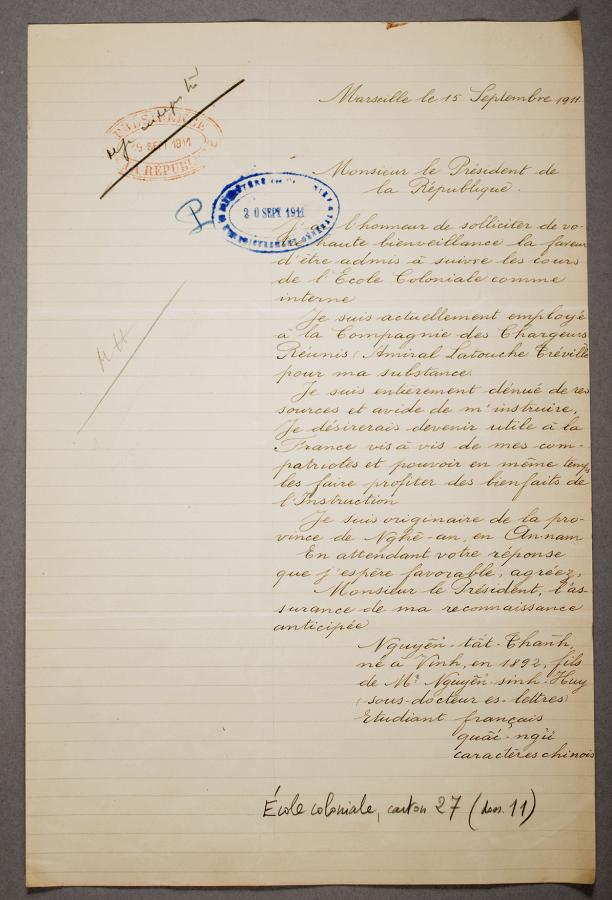 Marseille le 15 Septembre 1911
PRÉSIDENCE
SEPT 1911
LA RÉPUBLIQUE
Monsieur le Président de
la République.
MINISTÈRE
20 SEPT 1911
P
J'ai l'honneur de solliciter de vo-
tre haute bienveillance la faveur
d'être admis à suivre les cours
de l'Ecole Coloniale comme
interne
Je suis actuellement employé
à la Compagnie des Chargeurs
Réunis (Amiral Latouche Tréville
pour ma substance.
Je suis entièrement dénué de res
sources et avide de m'instruire.
Je désirerais devenir utile à la
France vis à vis de mes com-
patriotes et pouvoir en même temps
les faire profiter des bienfaits de
l'Instruction
Je suis originaire de la pro-
vince de Nghê-an, en An-nam
En attendant votre réponse
que j'espère favorable, agréez,
Monsieur le Président, l'as-
surance de ma reconnaissance
anticipée
Nguyễn-tât-Thanh,
né à Vinh, en 1892, fils
de Mr Nguyễn-sinh-Huy
(sous-docteur ès-lettres)
Etudiant français
quâc-ngü
caractères chinois
École coloniale, carton 27 (doss. 11)